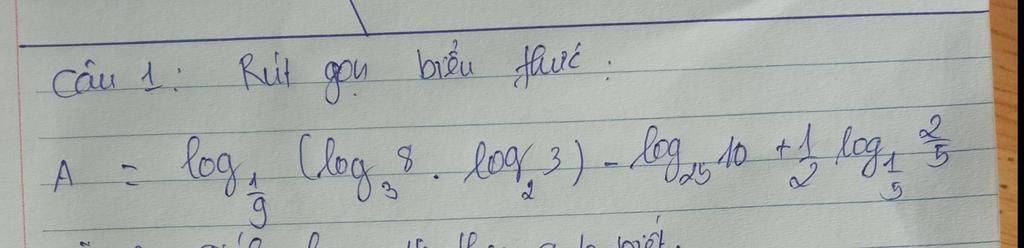 Câu 1: Rút gọn biểu thức:
A = log_{1/9} (log_3 8 . log_2 3) - log_{25} 10 + 1/2 log_{1/5} 2/5